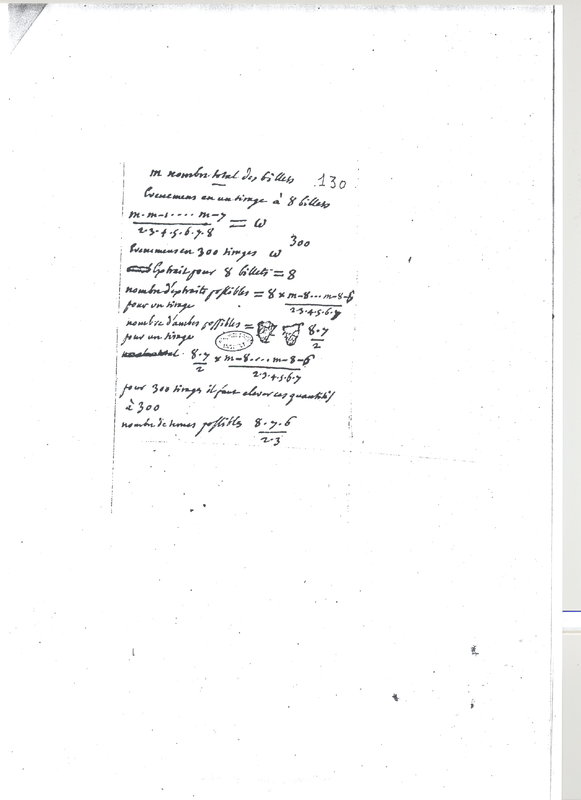 m nombre total des billets 130
Evenemens en un tirage à 8 billets
m. m-1 ..... m-7 = ω
2.3.4.5.6.7.8
Evenemens en 300 tirages ω 300
Extrait pour 8 billets = 8
nombre d'extraits possibles = 8 × m-8 ... m-8-6
pour un tirage 2.3.4.5.6.7
nombre d'ambes possibles = 8.7
pour un tirage 2
8.7 × m-8 ..... m-8-6
2 2.3.4.5.6.7
pour 300 tirages il faut elever ces quantités
à 300
nombre de ternes possibles 8.7.6
2.3